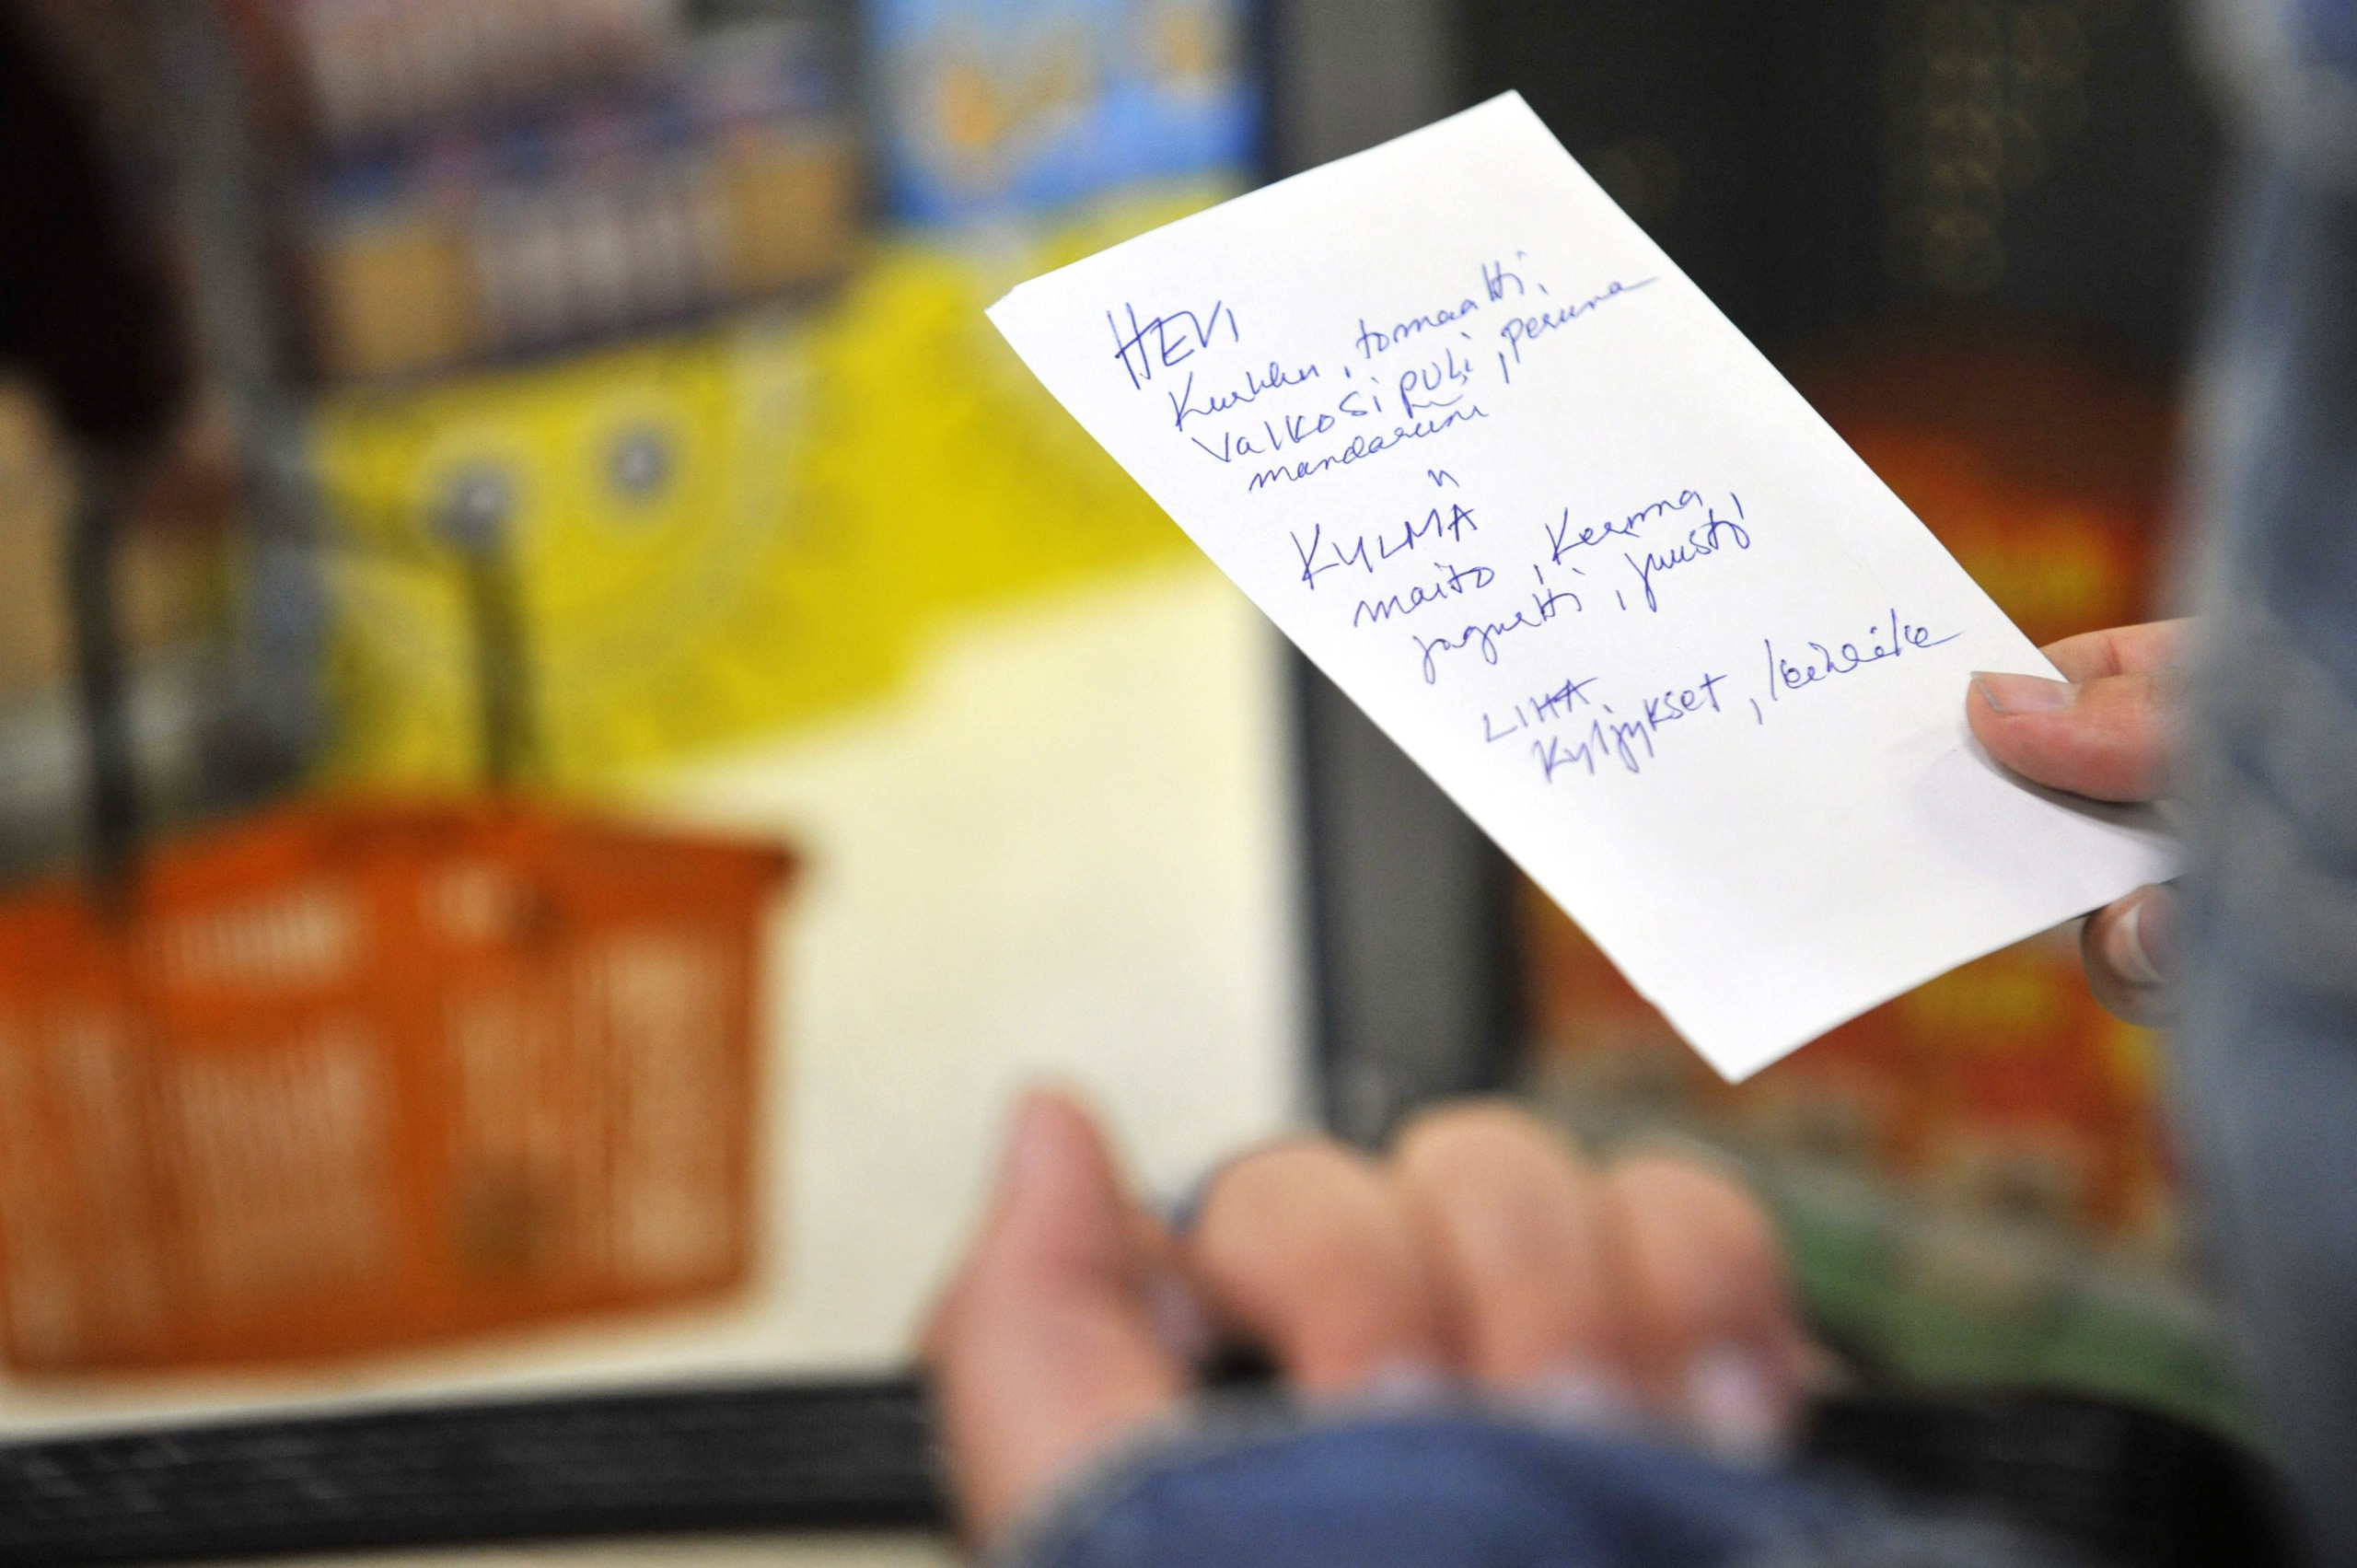 HEVI
Kurkku, tomaatti,
Valkosipuli, peruna
mandariini
KYLMÄ
maito, Kerma,
jogurtti, juusto
LIHA
Kyljykset, leikkele